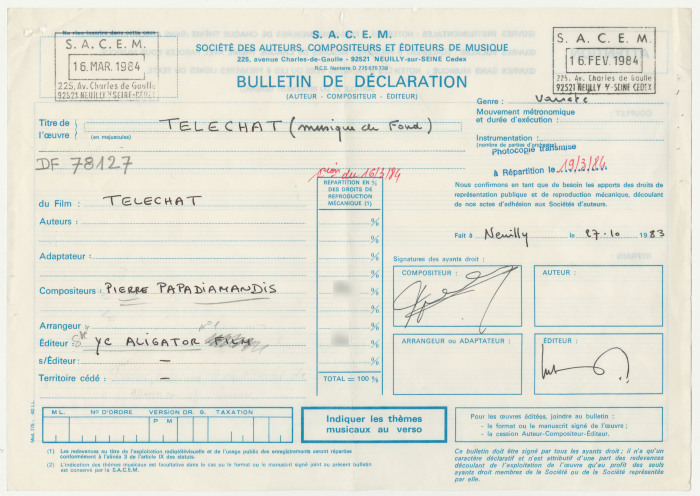 Ne rien inscrire dans cette case
S. A. C. E. M.
16. MAR. 1984
225, Av. Charles de Gaulle
92521 NEUILLY S/SEINE CEDEX
S. A. C. E. M.
SOCIÉTÉ DES AUTEURS, COMPOSITEURS ET ÉDITEURS DE MUSIQUE
225, avenue Charles-de-Gaulle - 92521 NEUILLY-sur-SEINE Cedex
R.C.S. Nanterre D 775 675 739
BULLETIN DE DÉCLARATION
(AUTEUR - COMPOSITEUR - ÉDITEUR)
S. A. C. E. M.
16. FEV. 1984
225, Av. Charles de Gaulle
92521 NEUILLY S/-SEINE CEDEX
Genre : Variété
Mouvement métronomique
et durée d'exécution :
Instrumentation :
(nombre de parties d'orchestre)
Photocopie transmise
à Répartition le 19/3/84
Titre de l'œuvre
(en majuscules)
TELECHAT (musique de Fond)
DF 78127
du 16/3/84
RÉPARTITION EN %
DES DROITS DE
REPRODUCTION
MÉCANIQUE (1)
du Film : TELECHAT
Auteurs : %
%
Adaptateur : %
%
Compositeurs : PIERRE PAPADIAMANDIS %
%
Arrangeur %
Éditeur : YC ALIGATOR FILM %
s/Éditeur : - %
Territoire cédé : - TOTAL = 100 %
Nous confirmons en tant que de besoin les apports des droits de
représentation publique et de reproduction mécanique, découlant
de nos actes d'adhésion aux Sociétés d'auteurs.
Fait à Neuilly le 27.10 1983
Signatures des ayants droit :
COMPOSITEUR :
AUTEUR :
ARRANGEUR ou ADAPTATEUR :
ÉDITEUR :
M L.
N° D'ORDRE
VERSION OR. G.
TAXATION
P M
Indiquer les thèmes
musicaux au verso
Pour les œuvres éditées, joindre au bulletin :
- le format ou le manuscrit signé de l'œuvre ;
- la cession Auteur-Compositeur-Éditeur.
(1) Les redevances au titre de l'exploitation radiotélévisuelle et de l'usage public des enregistrements seront réparties
conformément à l'alinéa 3 de l'article IX des statuts.
(2) L'indication des thèmes musicaux est facultative dans le cas où le format ou le manuscrit signé joint au présent bulletin
est conservé par la S.A.C.E.M.
Ce bulletin doit être signé par tous les ayants droit : il n'a qu'un
caractère déclaratif et n'est attributif d'une part des redevances
découlant de l'exploitation de l'œuvre qu'au profit des seuls
ayants droit membres de la Société ou de la Société représentée
par elle.